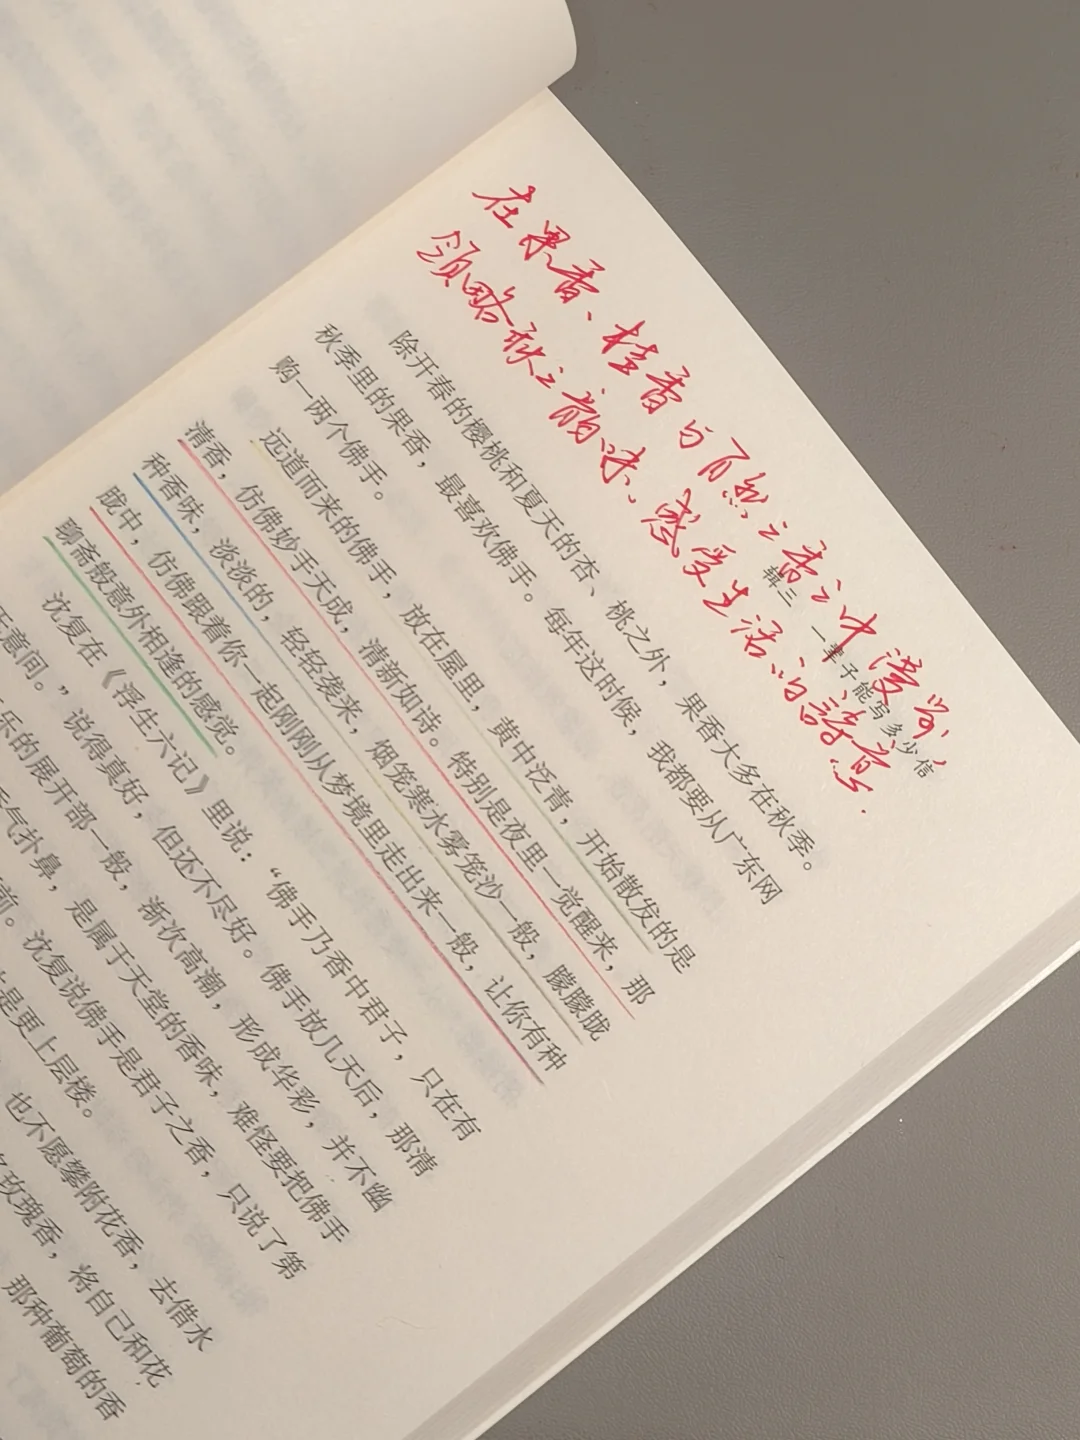 在果香、桂香与自然之香之中浸染,
领略秋之韵味、感受生活的诗意.
辑三 一辈子能写多少信
除开春的樱桃和夏天的杏、桃之外，果香大多在秋季。
秋季里的果香，最喜欢佛手。每年这时候，我都要从广东网
购一两个佛手。
远道而来的佛手，放在屋里，黄中泛青，开始散发的是
清香，仿佛妙手天成，清新如诗。特别是夜里一觉醒来，那
种香味，淡淡的，轻轻袭来，烟笼寒水雾笼沙一般，朦朦胧
胧中，仿佛跟着你一起刚刚从梦境里走出来一般，让你有种
聊斋般意外相逢的感觉。
沈复在《浮生六记》里说：“佛手乃香中君子，只在有
无意间。”说得真好，但还不尽好。佛手放几天后，那清
乐的展开部一般，渐次高潮，形成华彩，并不幽
气扑鼻，是属于天堂的香味，难怪要把佛手
前。沈复说佛手是君子之香，只说了第
是更上层楼。
也不愿攀附花香，去借水
玫瑰香，将自己和花
那种葡萄的香